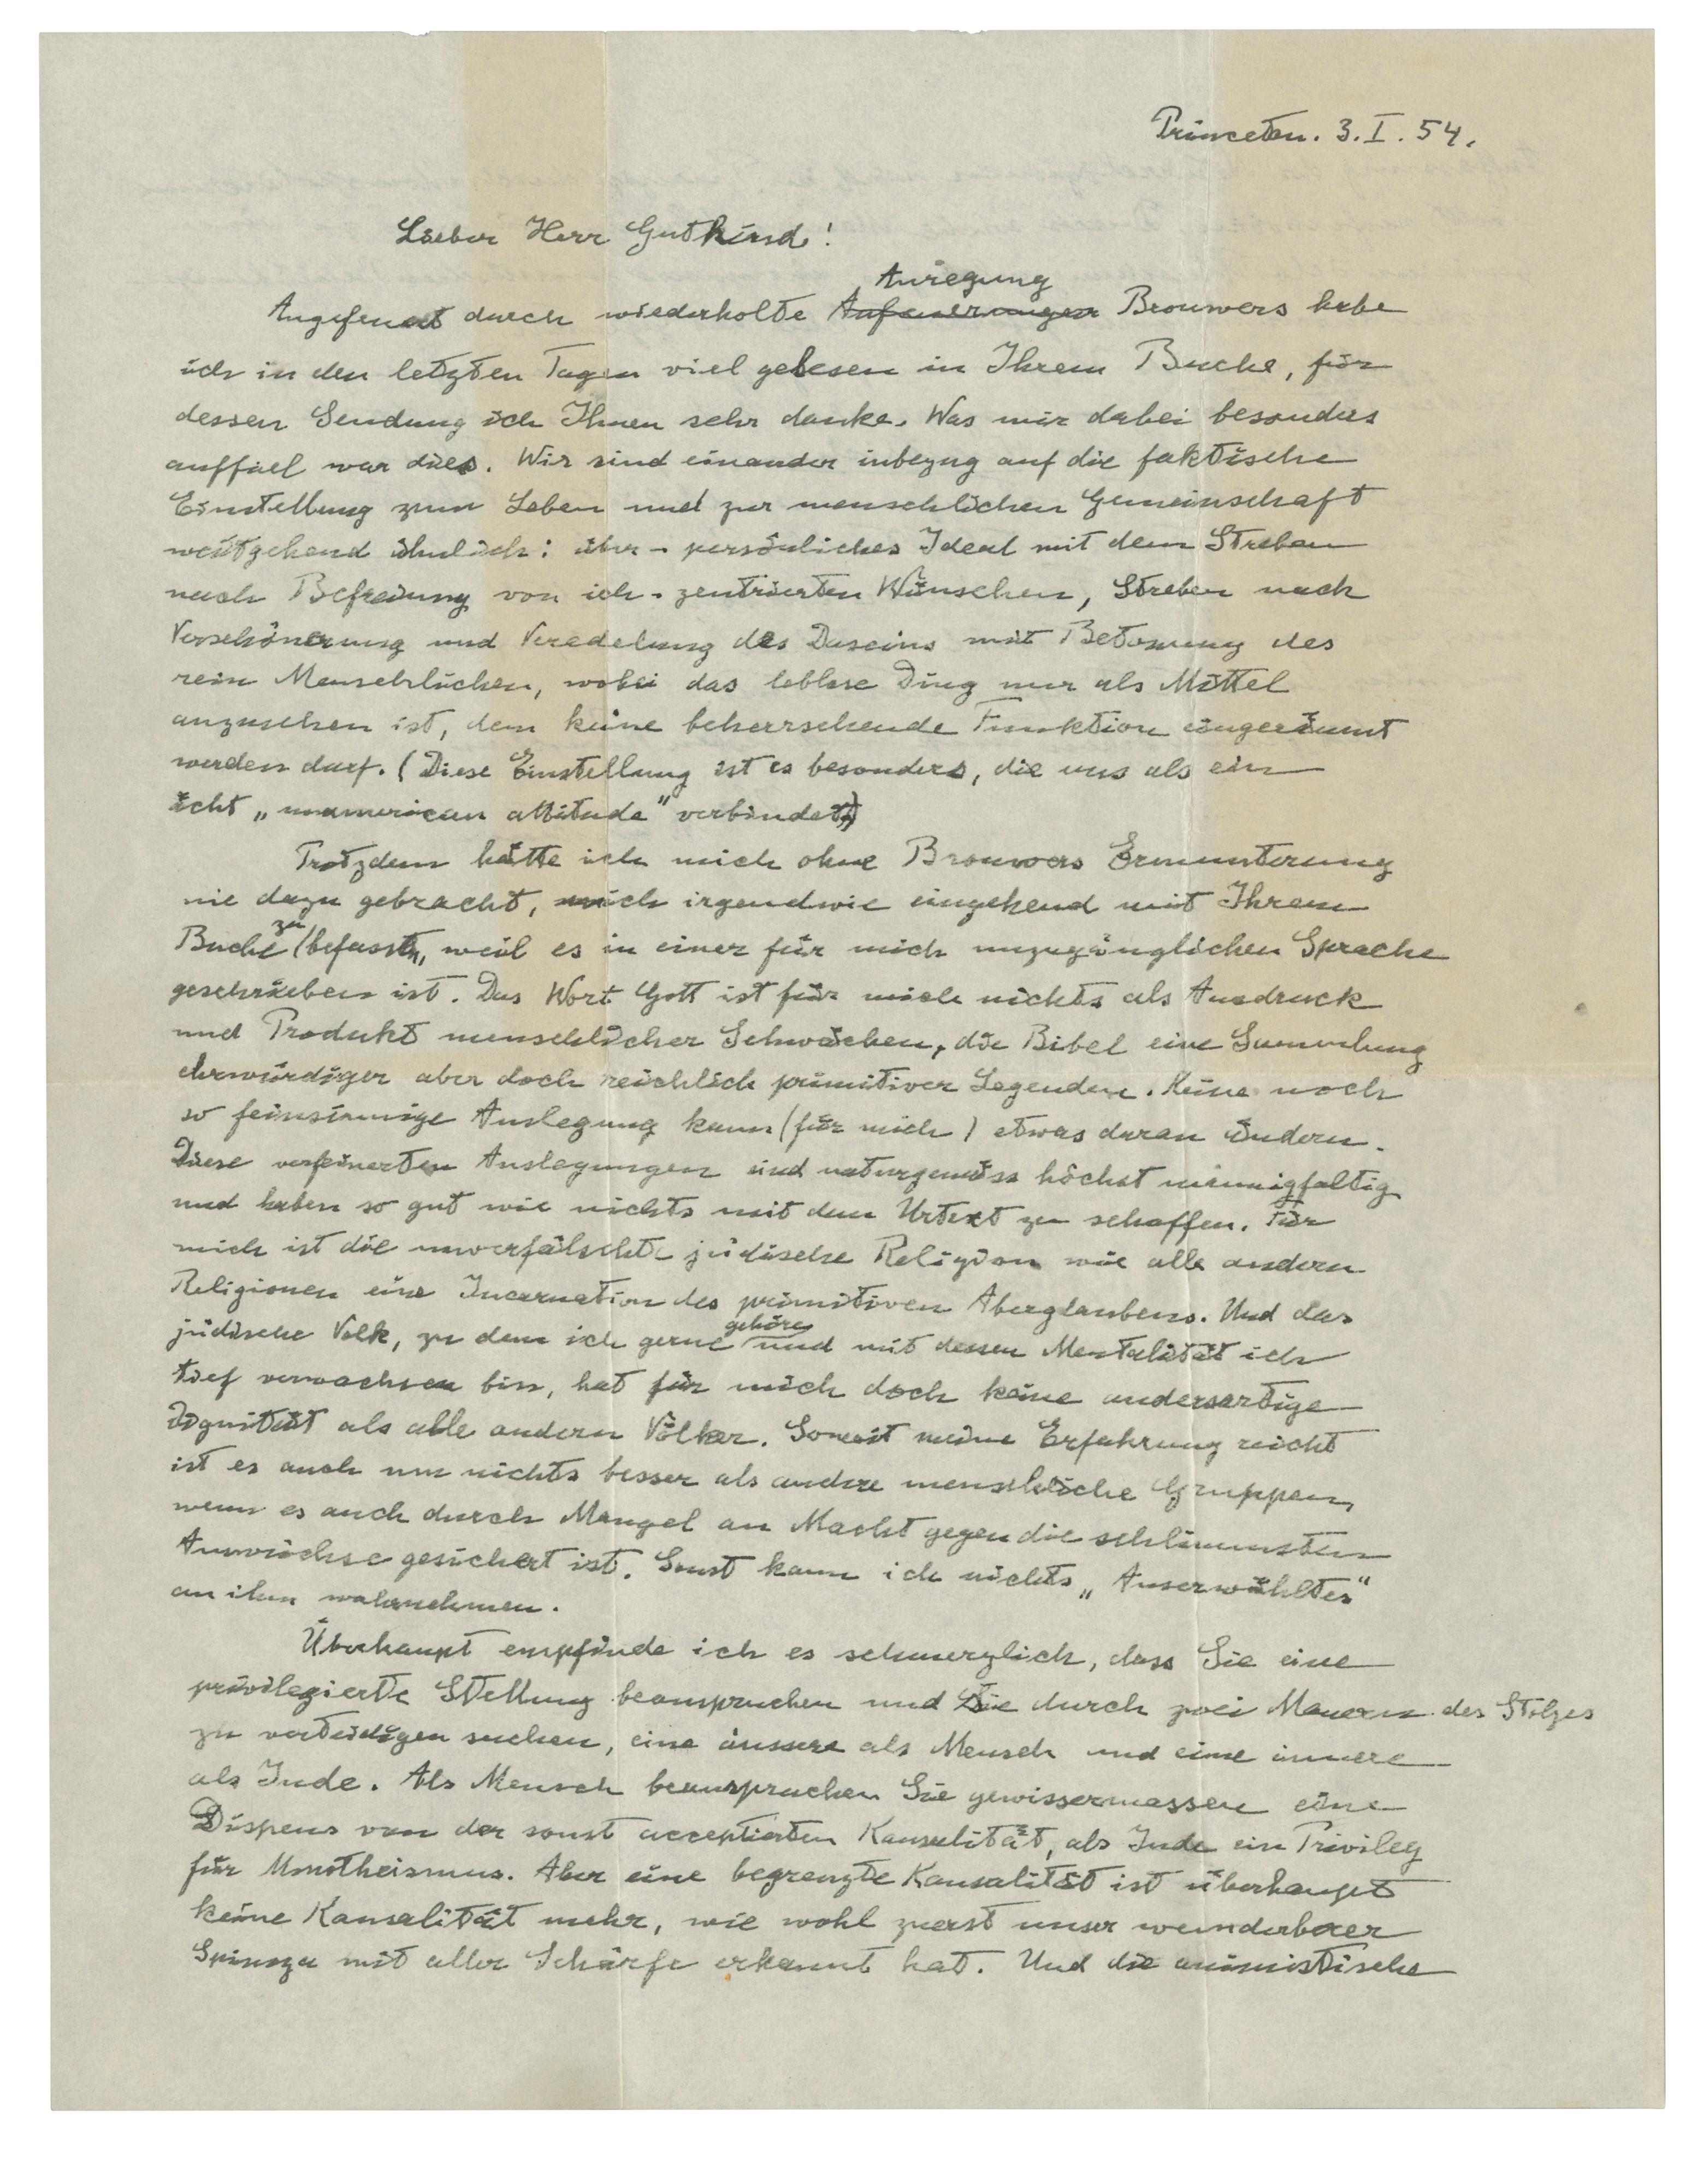 Princeton. 3. I. 54.
Lieber Herr Gutkind!
Anregung
Angefeuert durch wiederholte Anfeuerungen Brouwers habe
ich in den letzten Tagen viel gelesen in Ihrem Buche, für
dessen Sendung ich Ihnen sehr danke. Was mir dabei besonders
auffiel war dies. Wir sind einander inbezug auf die faktische
Einstellung zum Leben und zur menschlichen Gemeinschaft
weitgehend ähnlich: über-persönliches Ideal mit dem Streben
nach Befreiung von ich-zentrierten Wünschen, Streben nach
Verschönerung und Veredelung des Daseins mit Betonung des
rein Menschlichen, wobei das leblose Ding nur als Mittel
anzusehen ist, dem keine beherrschende Funktion eingeräumt
werden darf. (Diese Einstellung ist es besonders, die uns als ein
echt „unamerican attitude" verbindet)
Trotzdem hätte ich mich ohne Brouwers Ermunterung
nie dazu gebracht, mich irgendwie eingehend mit Ihrem
zu
Buche befassen, weil es in einer für mich unzugänglichen Sprache
geschrieben ist. Das Wort Gott ist für mich nichts als Ausdruck
und Produkt menschlicher Schwächen, die Bibel eine Sammlung
ehrwürdiger aber doch reichlich primitiver Legenden. Keine noch
so feinsinnige Auslegung kann (für mich) etwas daran ändern.
Diese verfeinerten Auslegungen sind naturgemäss höchst mannigfaltig
und haben so gut wie nichts mit dem Urtext zu schaffen. Für
mich ist die unverfälschte jüdische Religion wie alle andern
Religionen eine Incarnation des primitiven Aberglaubens. Und das
gehöre
jüdische Volk, zu dem ich gerne und mit dessen Mentalität ich
tief verwachsen bin, hat für mich doch keine andersartige
Dignität als alle andern Völker. Soweit meine Erfahrung reicht
ist es auch um nichts besser als andere menschliche Gruppen,
wenn es auch durch Mangel an Macht gegen die schlimmsten
Auswüchse gesichert ist. Sonst kann ich nichts „Auserwähltes"
an ihm wahrnehmen.
Überhaupt empfinde ich es schmerzlich, dass Sie eine
privilegierte Stellung beanspruchen und sie durch zwei Mauern des Stolzes
zu verteidigen suchen, eine äussere als Mensch und eine innere
als Jude. Als Mensch beanspruchen Sie gewissermassen eine
Dispens von der sonst acceptierten Kausalität, als Jude ein Privileg
für Monotheismus. Aber eine begrenzte Kausalität ist überhaupt
keine Kausalität mehr, wie wohl zuerst unser wunderbarer
Spinoza mit aller Schärfe erkannt hat. Und die animistische